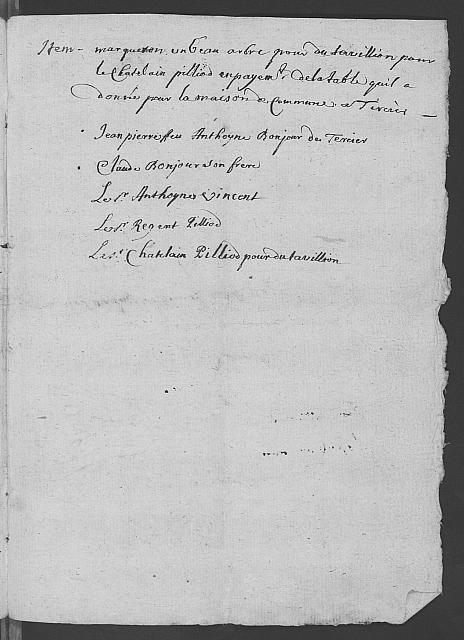 Item - marqueron un beau arbre pour du tavillion pour
le Chatelain pilliod en payemt. de la table quil a
donnée pour la maison de Commune a Tercier
Jean pierre feu Anthoyne Bonjour de Tercier
Claude Bonjour son frere
Le sr. Anthoyne Vincent
Le sr. Regent Pilliod
Le sr. Chatelain Pilliod pour du tavillion